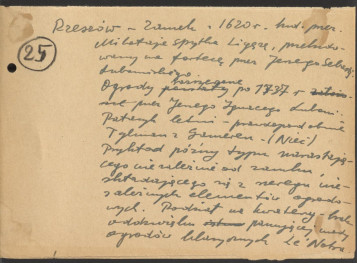 25
Rzeszów – zamek . 1620 r. bud. przez
Mikołaja Spytka Ligęzę, przebudo-
wany na fortecę przez Jerzego Sebast.
Lubomirskiego.
Ogrody po 1737 r
przez Jerzego Ignacego Lubom.
letni – prawdopodobnie
Tylman z Gameren –
Przykład późny typu
cego niezależnie od zamku,
składającego się z szeregu nie-
zależnych elementów ogrodo-
wych. Podział na kwatery – brak
oddźwięku panującej mody
ogrodów klasycznych Le Notra